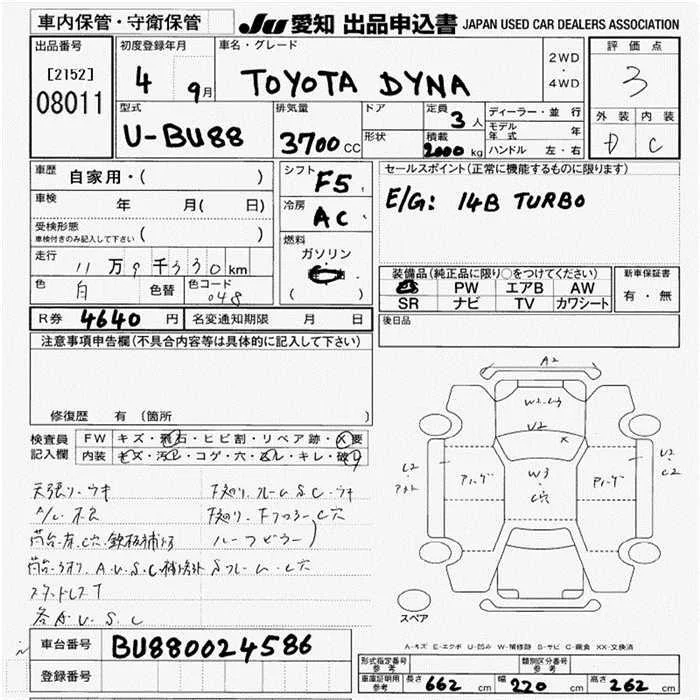 車内保管・守衛保管
JU 愛知 出品申込書 JAPAN USED CAR DEALERS ASSOCIATION
出品番号
[2152]
08011
初度登録年月
4 9月
車名・グレード
TOYOTA DYNA
2WD
・
4WD
評価点
3
外装 内装
D C
型式
U-BU88
排気量
3700cc
ドア
形状
定員 3人
積載 2000kg
ディーラー・並行
モデル年式 年
ハンドル 左・右
車歴 自家用・( )
車検 年 月( 日)
受検形態
車検付きのみ記入して下さい ( )
走行 11万9千330km
色 白 色替 色コード 048
シフト F5
冷房 AC
燃料
ガソリン
( )
セールスポイント(正常に機能するものに限ります)
E/G: 14B TURBO
装備品(純正品に限り○をつけてください)
PW エアB AW
SR ナビ TV カワシート
新車保証書
有・無
R券 4640円 名変通知期限 月 日
後日品
注意事項申告欄(不具合内容等は具体的に記入して下さい)
修復歴 有(箇所
検査員記入欄
FW キズ・飛石・ヒビ割・リペア跡・X要
内装 キズ・汚レ・コゲ・穴・スレ・キレ・破レ
天張り・ウキ
下廻り.フレームS.C.ウキ
下廻り.
荷台.床.C穴.鉄板補修
各A.U.S.C
A2
U2
X
W3
C穴
L2
U2
C2
スペア
A-キズ E-エクボ U-凹み W-補修跡 S-サビ C-腐食 XX-交換済
車台番号 BU880024586
登録番号
形式指定番号 参考
類別区分番号 参考
車庫証明用 参考 長さ 662cm 幅 220cm 高さ 262cm